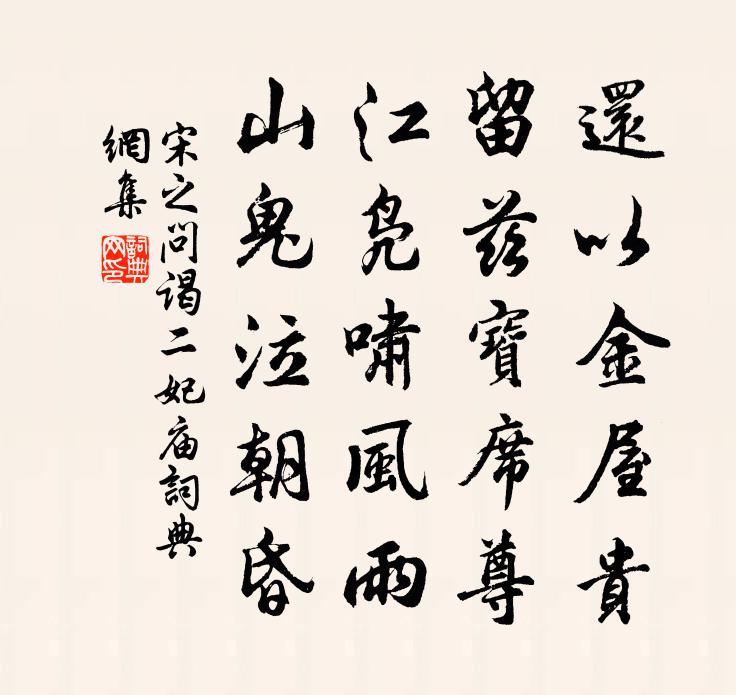 還以金屋貴
留茲寶席尊
江鳧嘯風雨
山鬼泣朝昏
宋之问謁二妃庙詞典
網集
詞典
网印